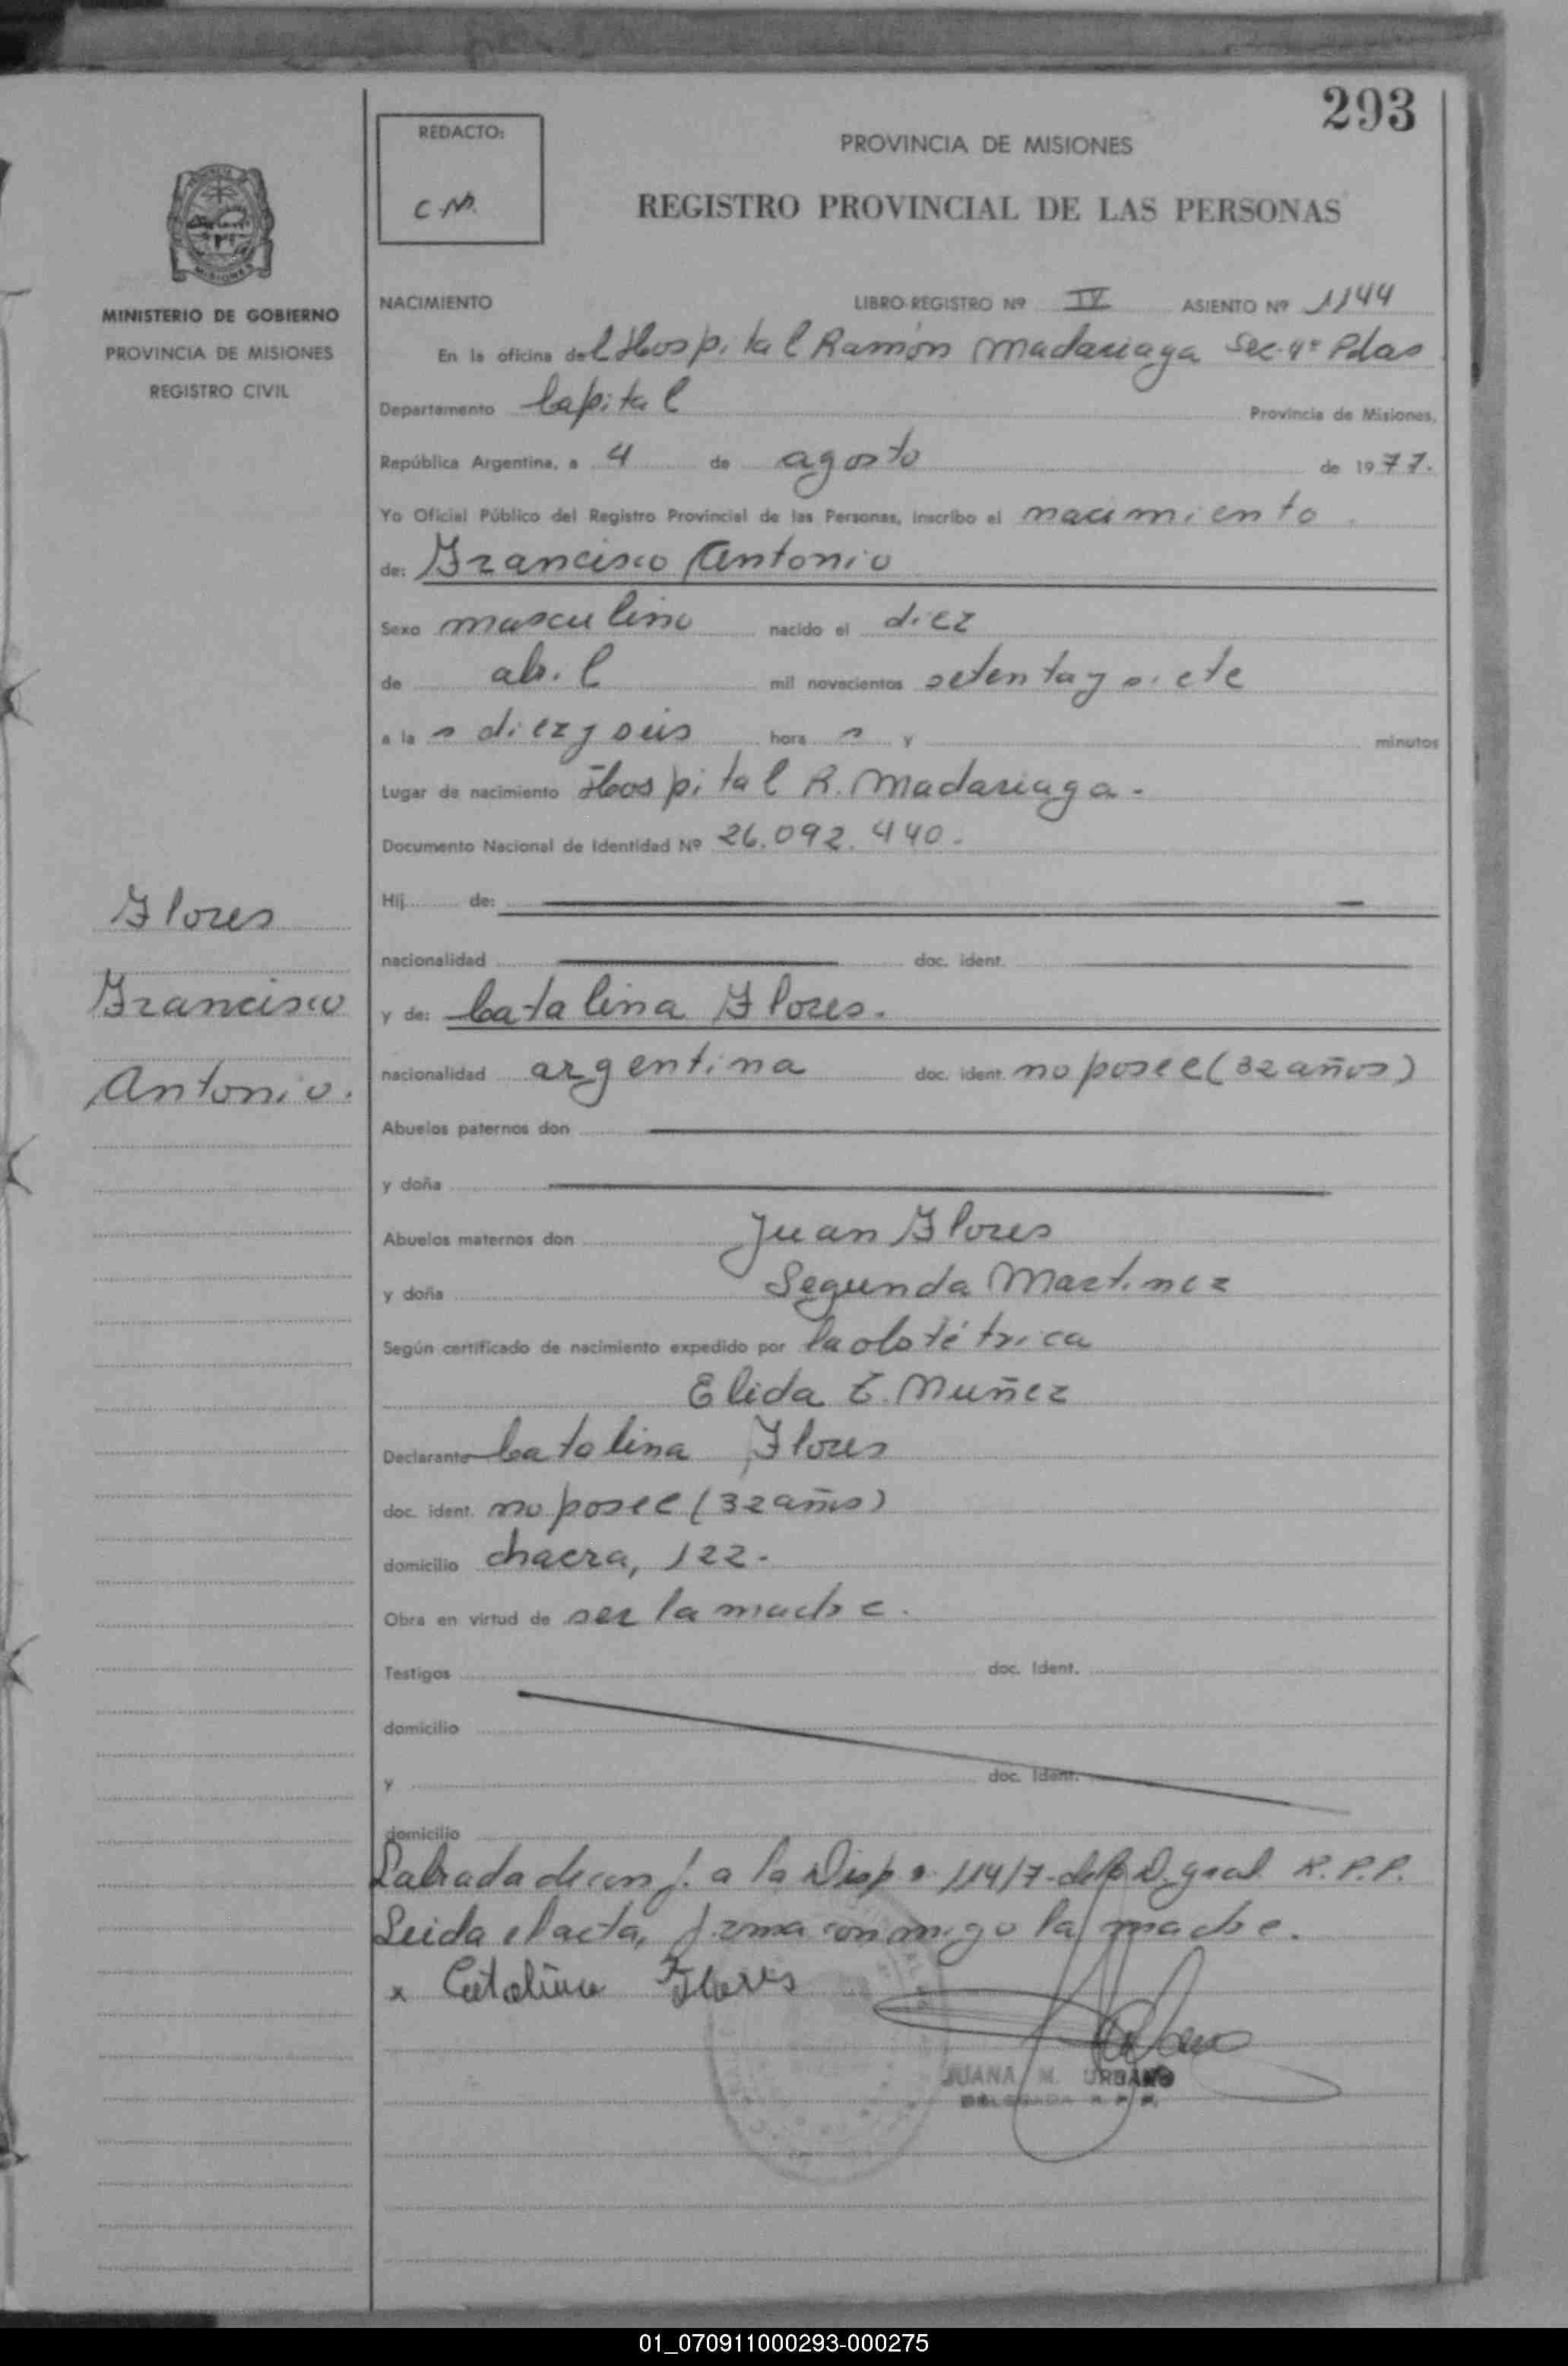 293
REDACTO:
C.M.
PROVINCIA DE MISIONES
REGISTRO PROVINCIAL DE LAS PERSONAS
MISIONES
MINISTERIO DE GOBIERNO
PROVINCIA DE MISIONES
REGISTRO CIVIL
NACIMIENTO LIBRO REGISTRO Nº IV ASIENTO Nº 1144
En la oficina del Hospital Ramón Madariaga Sec. 4ª Pdas
Departamento Capital Provincia de Misiones,
República Argentina, a 4 de agosto de 1977.
Yo Oficial Público del Registro Provincial de las Personas, inscribo el nacimiento
de: Francisco Antonio
Sexo masculino nacido el diez
de abril mil novecientos setenta y siete
a la s diez y seis hora s y minutos
Lugar de nacimiento Hospital R. Madariaga.
Documento Nacional de Identidad Nº 26.092.440.
Hij de:
nacionalidad doc. ident.
y de: Catalina Flores.
nacionalidad argentina doc. ident. no posee (32 años)
Abuelos paternos don
y doña
Abuelos maternos don Juan Flores
y doña Segunda Martinez
Según certificado de nacimiento expedido por la obstétrica
Elida E. Muñez
Declarante Catalina Flores
doc. ident. no posee (32 años)
domicilio chacra, 122.
Obra en virtud de ser la madre.
Testigos doc. Ident.
domicilio
y doc. Ident.
domicilio
Labrada de conf. a la Disp. 114/7- de la D. gral. R.P.P.
Leida el acta, firma conmigo la madre.
x Catalina Flores
JUANA M. URBANO
DELEGADA R. P. P.
Flores
Francisco
Antonio.
01_070911000293-000275